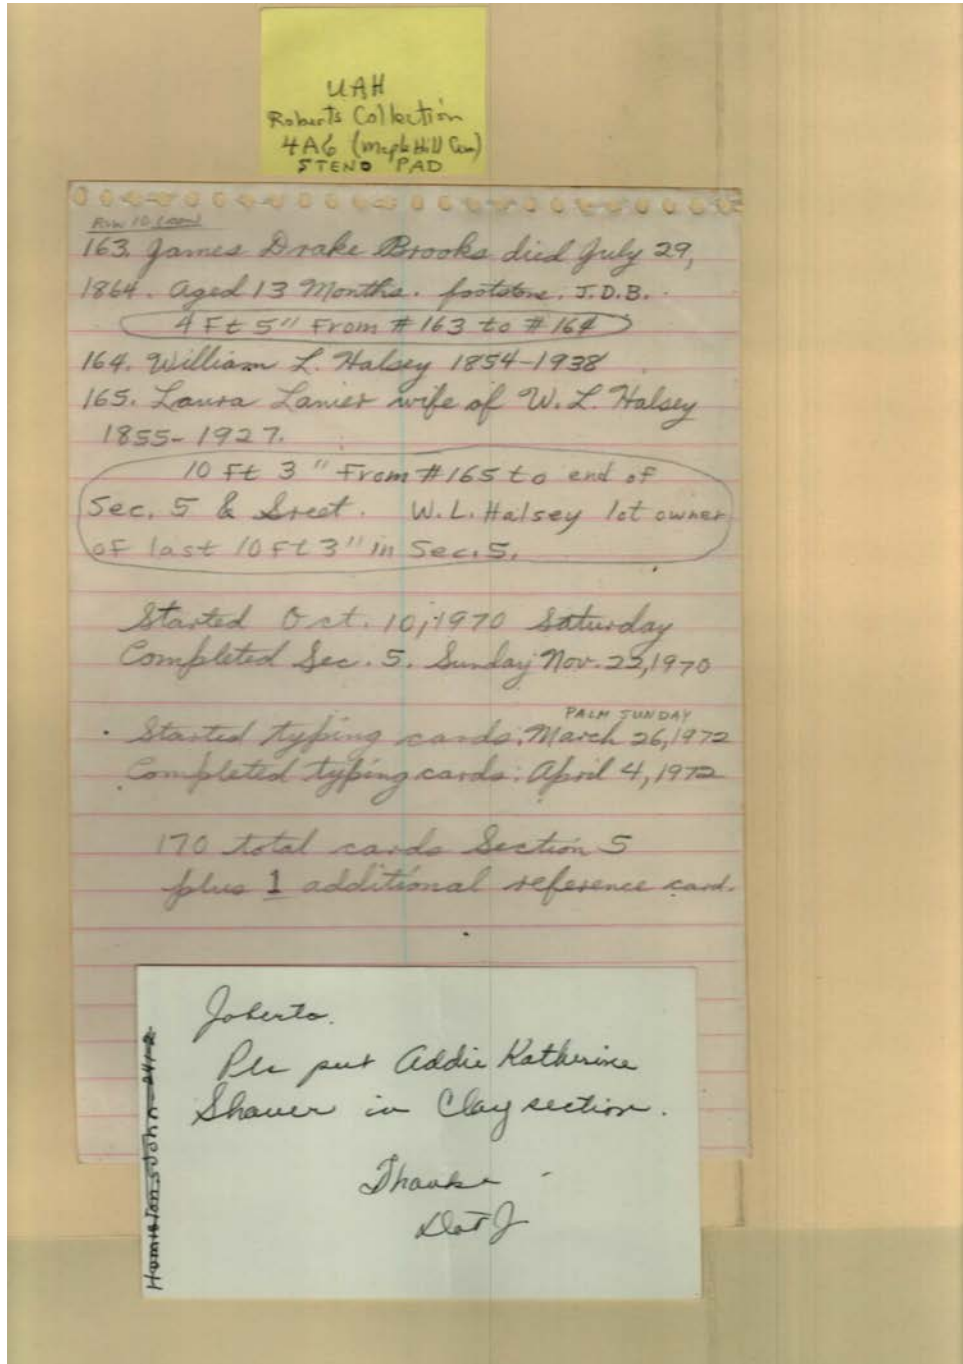 UAH
Roberts Collection
4A6 (Maple Hill Cem)
STENO PAD
Row 10 (con)
163. James Drake Brooks died July 29,
1864. Aged 13 Months. footstone. J.D.B.
4 Ft 5" From #163 to #164
164. William L. Halsey 1854-1938
165. Laura Lanier wife of W. L. Halsey
1855-1927.
10 Ft 3" From #165 to end of
Sec. 5 & Sreet. W.L. Halsey lot owner
of last 10 Ft 3" in Sec. 5.
Started Oct. 10, 1970 Saturday
Completed Sec. 5. Sunday Nov. 22, 1970
PALM SUNDAY
Started typing cards: March 26, 1972
Completed typing cards: April 4, 1972
170 total cards Section 5
plus 1 additional reference card.
Joberta.
Pls put Addie Katherine
Shaver in Clay section.
Thanks
Dot J
John 241-2